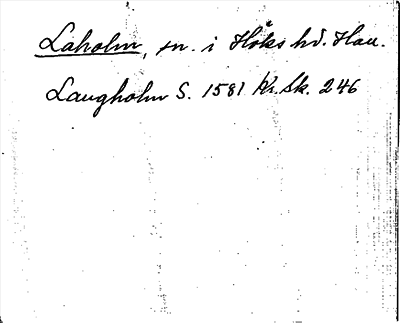 Laholm, sn. i Höks hd. Hall.
Laugholm S. 1581 Kr. Sk. 246